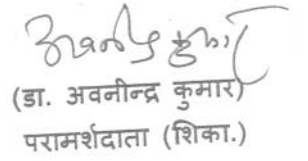 अवनीन्द्र कुमार
(डा. अवनीन्द्र कुमार)
परामर्शदाता (शिका.)